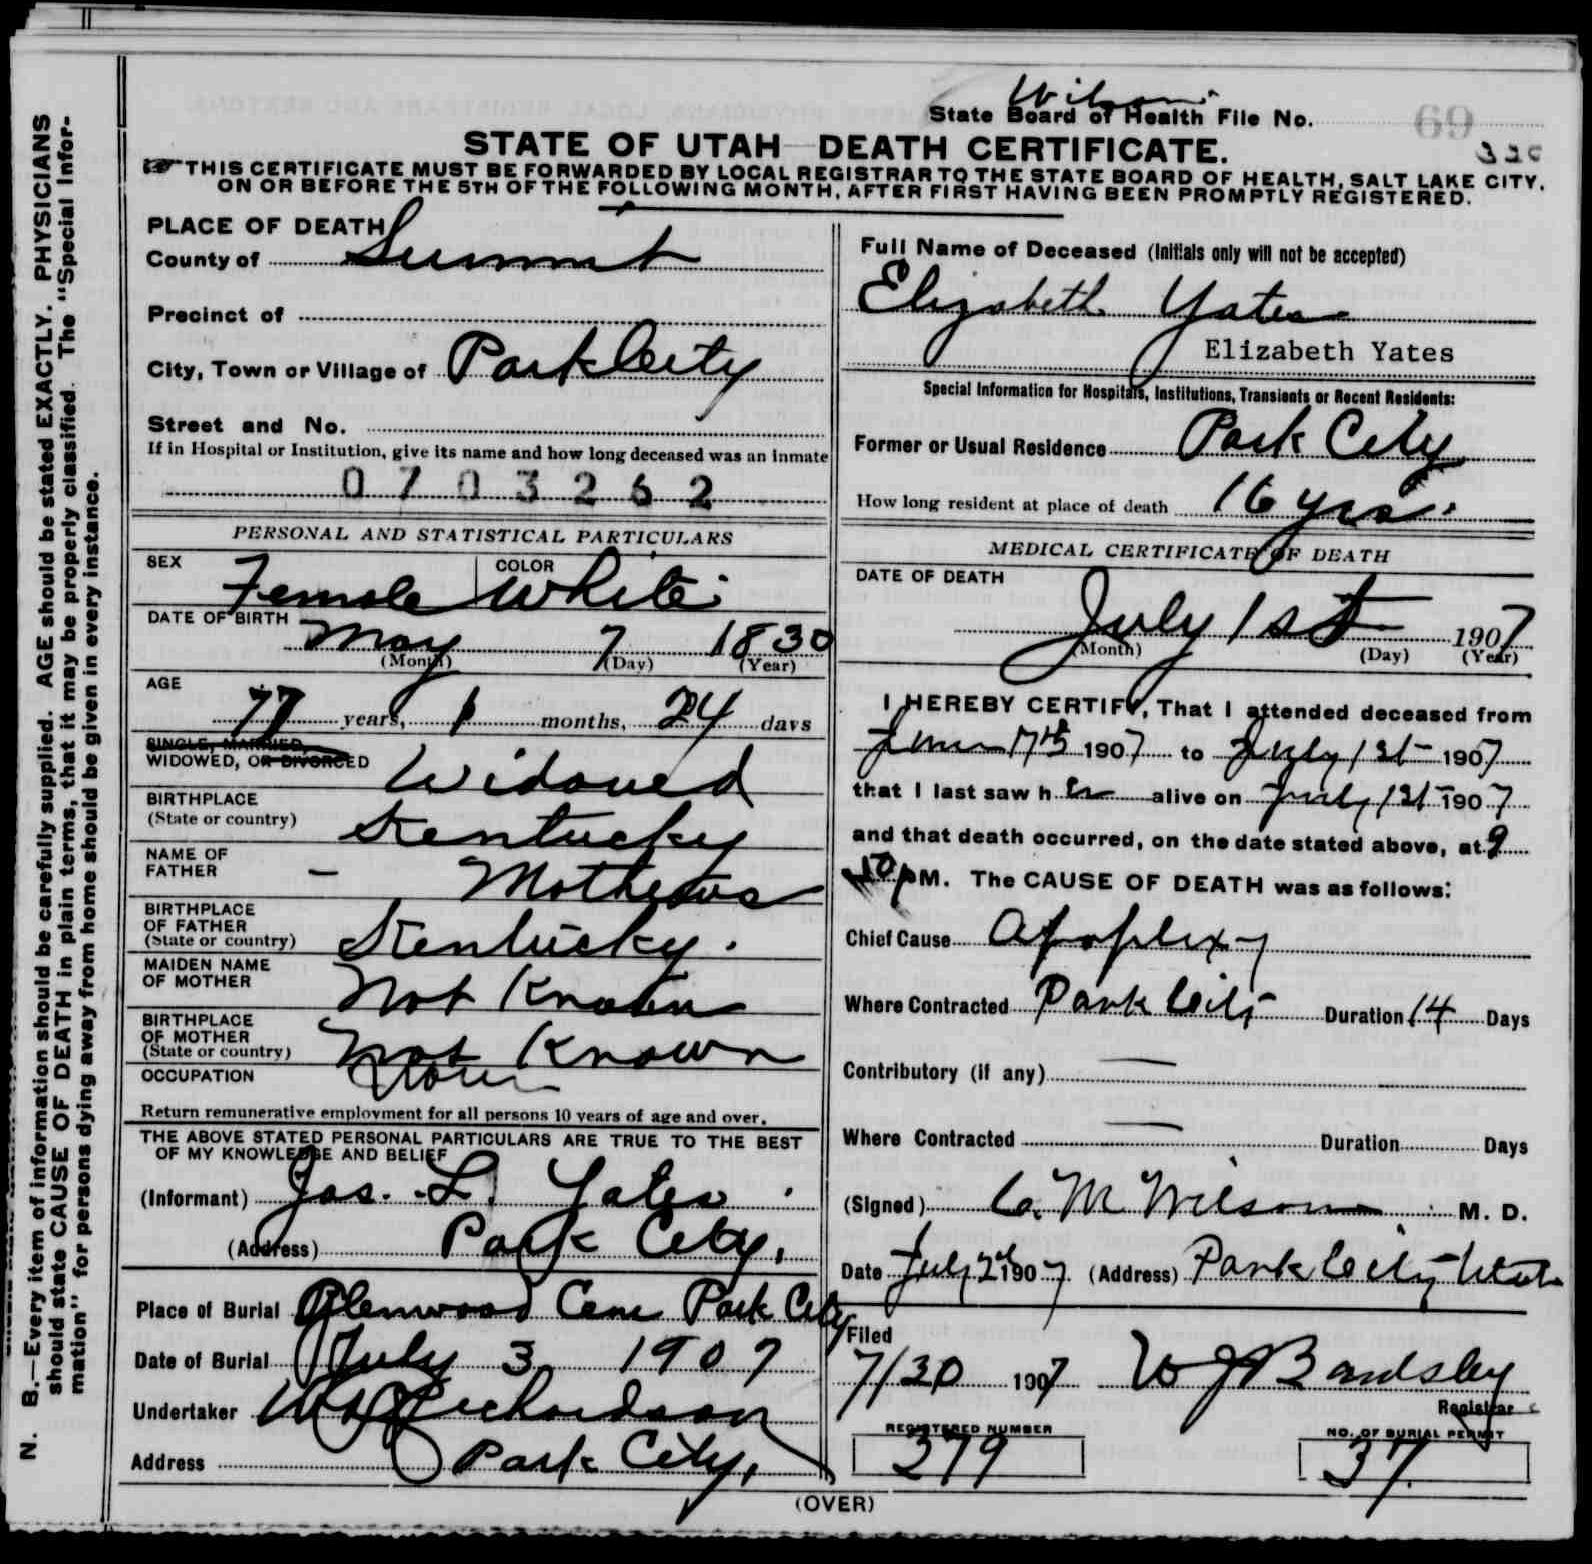 N. B.—Every item of information should be carefully supplied. AGE should be stated EXACTLY. PHYSICIANS
should state CAUSE OF DEATH in plain terms, that it may be properly classified. The "Special Infor-
mation" for persons dying away from home should be given in every instance.
Wilson
State Board of Health File No.
69
STATE OF UTAH—DEATH CERTIFICATE.
THIS CERTIFICATE MUST BE FORWARDED BY LOCAL REGISTRAR TO THE STATE BOARD OF HEALTH, SALT LAKE CITY,
ON OR BEFORE THE 5TH OF THE FOLLOWING MONTH, AFTER FIRST HAVING BEEN PROMPTLY REGISTERED.
PLACE OF DEATH
County of Summit
Precinct of
City, Town or Village of Park City
Street and No.
If in Hospital or Institution, give its name and how long deceased was an inmate
0703262
PERSONAL AND STATISTICAL PARTICULARS
SEX Female COLOR White
DATE OF BIRTH May 7 1830
(Month) (Day) (Year)
AGE
77 years, 1 months, 24 days
SINGLE, MARRIED,
WIDOWED, OR DIVORCED Widowed
BIRTHPLACE
(State or country) Kentucky
NAME OF
FATHER – Mathews
BIRTHPLACE
OF FATHER
(State or country) Kentucky.
MAIDEN NAME
OF MOTHER Not Known
BIRTHPLACE
OF MOTHER
(State or country) Not Known
OCCUPATION None
Return remunerative employment for all persons 10 years of age and over.
THE ABOVE STATED PERSONAL PARTICULARS ARE TRUE TO THE BEST
OF MY KNOWLEDGE AND BELIEF
(Informant) Jas. L. Yates
(Address) Park City,
Place of Burial Glenwood Cem Park City
Date of Burial July 3 1907
Undertaker Richardson
Address Park City,
Full Name of Deceased (Initials only will not be accepted)
Elizabeth Yates
Elizabeth Yates
Special Information for Hospitals, Institutions, Transients or Recent Residents:
Former or Usual Residence Park City
How long resident at place of death 16 yrs.
MEDICAL CERTIFICATE OF DEATH
DATE OF DEATH
July 1st 1907
(Month) (Day) (Year)
I HEREBY CERTIFY, That I attended deceased from
June 17th 1907 to July 1st 1907
that I last saw h er alive on July 1st 1907
and that death occurred, on the date stated above, at 9
PM. The CAUSE OF DEATH was as follows:
Chief Cause Apoplexy
Where Contracted Park City Duration 14 Days
Contributory (if any) —
Where Contracted — Duration Days
(Signed) C. M Wilson M. D.
Date July 2d 1907 (Address) Park City Utah
Filed
7/30 1907 W J Bardsley
Registrar
REGISTERED NUMBER
379
NO. OF BURIAL PERMIT
37
(OVER)